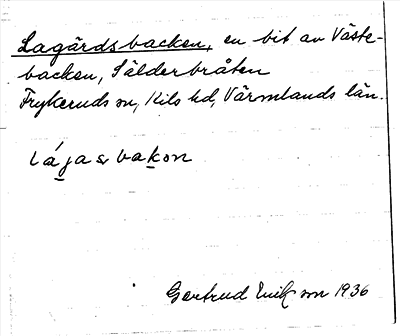 Lagårdsbacken, en bit av Väste-
backen, Sälderbråten
Frykeruds sn, Kils hd, Värmlands län.
Gertrud Eriksson 1936